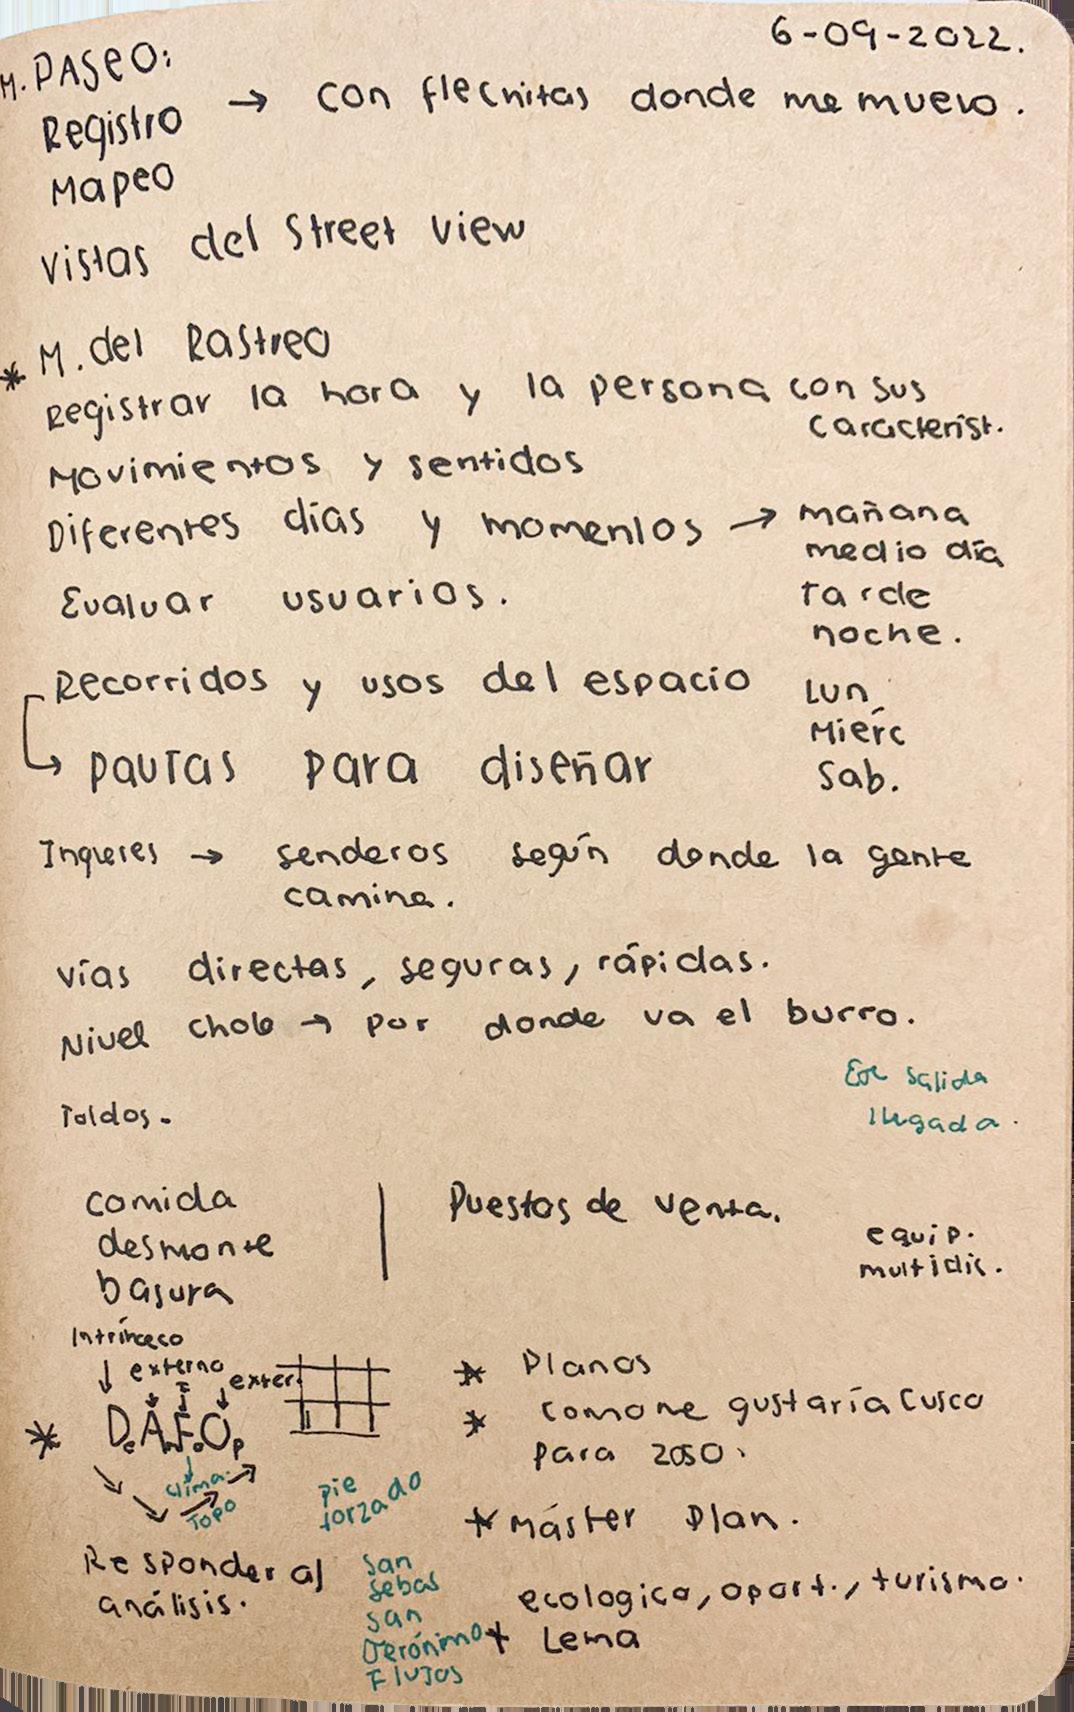 6-09-2022.
M. PASEO:
Registro → con flechitas donde me muevo.
Mapeo
Vistas del Street View
* M. del Rastreo
Registrar la hora y la persona con sus
caracterist.
Movimientos y sentidos
Diferentes días y momentos → mañana
medio día
tarde
noche.
Evaluar usuarios.
Recorridos y usos del espacio
Lun
Mierc
Sab.
→ pautas para diseñar
Ingleses → senderos según donde la gente
camina.
vías directas, seguras, rápidas.
Nivel cholo → por donde va el burro.
salida
llegada.
Toldos.
comida
desmonte
basura
Puestos de venta.
equip.
multidic.
Intrínseco
↓ externo
exter.
* D.A.F.O.
clima
Topo
pie
forzado
Responder al
análisis.
San
Sebas
San
Jerónimo
Flujos
* Planos
* como me gustaría Cusco
para 2050.
* Máster Plan.
ecologico, oport., turismo.
* Lema